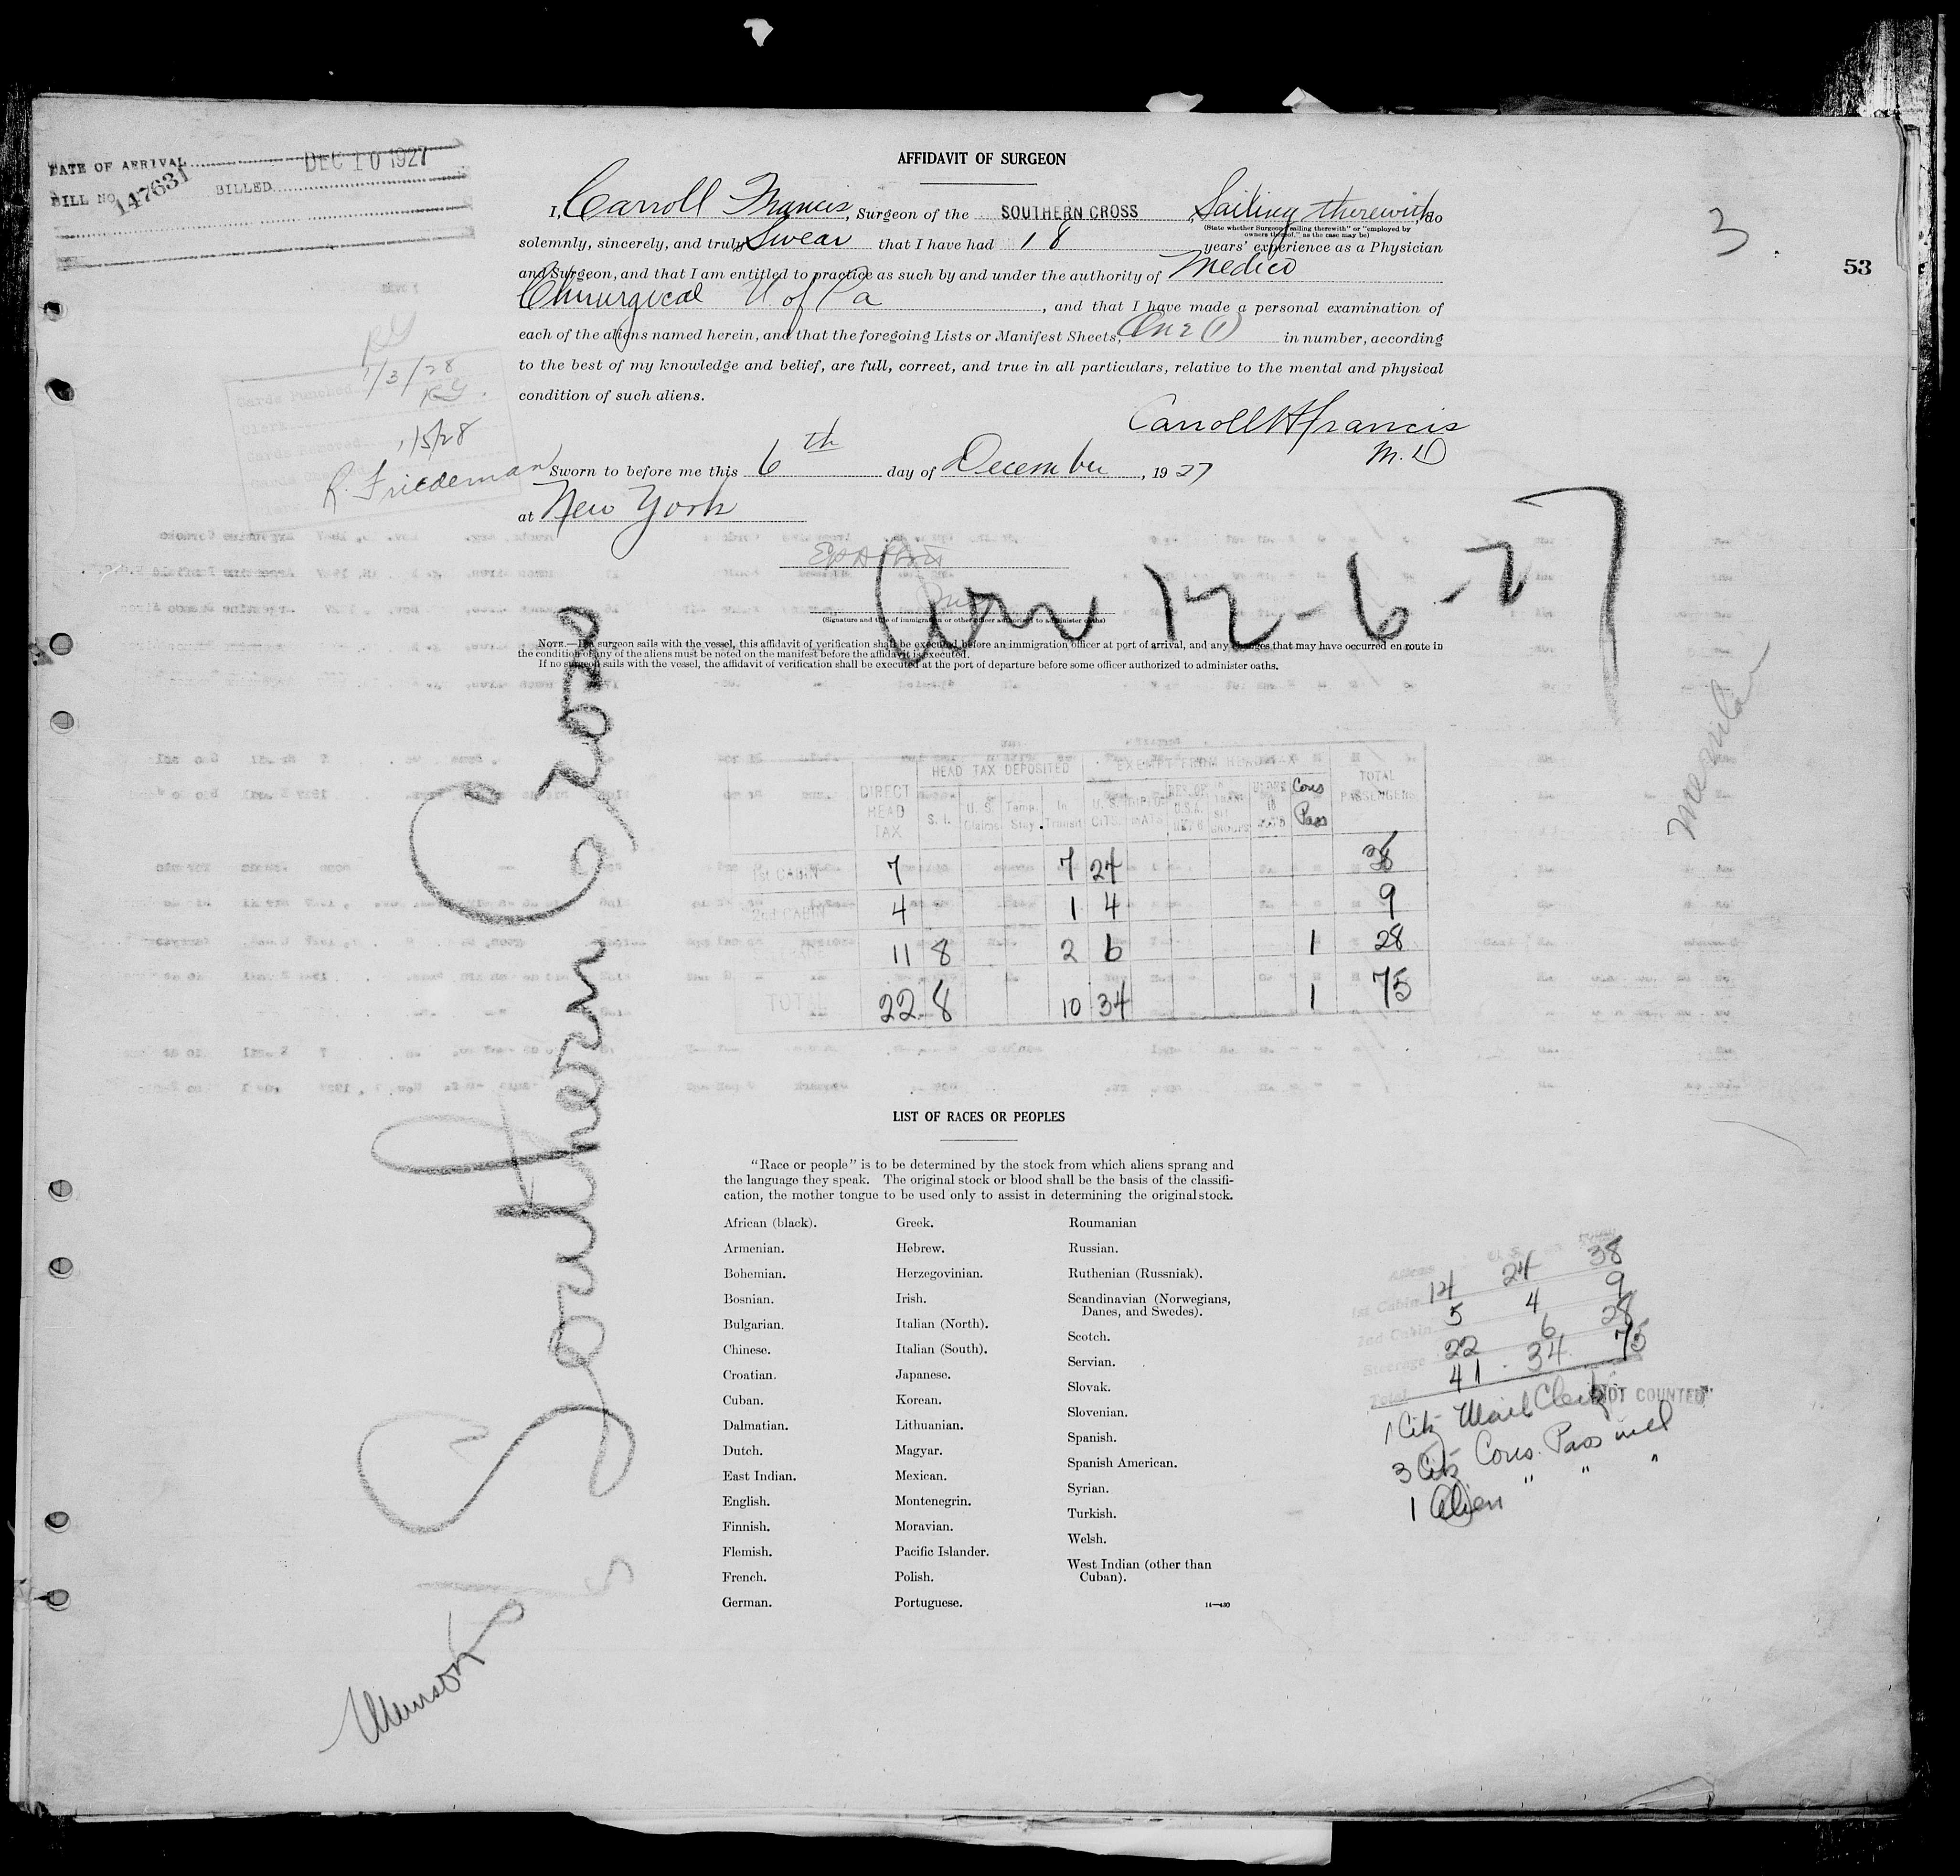 DATE OF ARRIVAL DEC 10 1927
BILL NO. 147631 BILLED
53
3
AFFIDAVIT OF SURGEON
I, Carroll Francis, Surgeon of the SOUTHERN CROSS, Sailing therewith, do
(State whether Surgeon "sailing therewith" or "employed by
owners thereof," as the case may be)
solemnly, sincerely, and truly Swear that I have had 18 years' experience as a Physician
and Surgeon, and that I am entitled to practice as such by and under the authority of Medico
Chirurgical U of Pa, and that I have made a personal examination of
each of the aliens named herein, and that the foregoing Lists or Manifest Sheets, One (1) in number, according
to the best of my knowledge and belief, are full, correct, and true in all particulars, relative to the mental and physical
condition of such aliens.
Carroll H Francis
M.D
Cards Punched 1/3/28
Clerk
1/5/28
R. Friedeman
Sworn to before me this 6th day of December, 1927
at New York
(Signature and title of immigration or other officer authorized to administer oaths)
Arr 12-6-27
NOTE.—If a surgeon sails with the vessel, this affidavit of verification shall be executed before an immigration officer at port of arrival, and any changes that may have occurred en route in
the condition of any of the aliens must be noted on the manifest before the affidavit is executed.
If no surgeon sails with the vessel, the affidavit of verification shall be executed at the port of departure before some officer authorized to administer oaths.
Southern Cross
HEAD TAX DEPOSITED EXEMPT FROM HEAD TAX
DIRECT HEAD TAX S. I. U. S. Claims Temp. Stay In Transit U. S. CITS. DIPLOMATS Cons Pass TOTAL PASSENGERS
1st CABIN 7 7 24 38
2nd CABIN 4 1 4 9
11 8 2 6 1 28
TOTAL 22 8 10 34 1 75
LIST OF RACES OR PEOPLES
"Race or people" is to be determined by the stock from which aliens sprang and
the language they speak. The original stock or blood shall be the basis of the classifi-
cation, the mother tongue to be used only to assist in determining the original stock.
African (black).
Armenian.
Bohemian.
Bosnian.
Bulgarian.
Chinese.
Croatian.
Cuban.
Dalmatian.
Dutch.
East Indian.
English.
Finnish.
Flemish.
French.
German.
Greek.
Hebrew.
Herzegovinian.
Irish.
Italian (North).
Italian (South).
Japanese.
Korean.
Lithuanian.
Magyar.
Mexican.
Montenegrin.
Moravian.
Pacific Islander.
Polish.
Portuguese.
Roumanian
Russian.
Ruthenian (Russniak).
Scandinavian (Norwegians,
Danes, and Swedes).
Scotch.
Servian.
Slovak.
Slovenian.
Spanish.
Spanish American.
Syrian.
Turkish.
Welsh.
West Indian (other than
Cuban).
14—430
Aliens U. S.
1st Cabin 14 24 38
2nd Cabin 5 4 9
Steerage 22 6 28
Total 41 34 75
1 Citz Mail Clerk NOT COUNTED
3 Citz Cons. Pass incl
1 Alien " " "